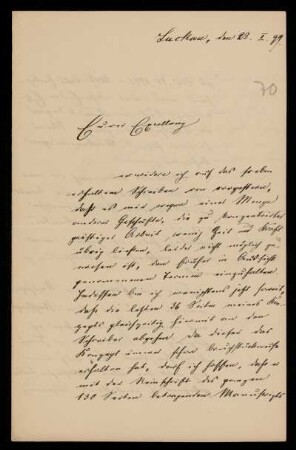 Luckau, den 23. X. 99
70
Eurer Excellenz
erwidere ich auf das soeben
erhaltene Schreiben von vorgestern,
daß es mir wegen einer Menge
anderer Geschäfte, die zu konzentrierter
geistiger Arbeit wenig Zeit und Kraft
übrig ließen, leider nicht möglich ge-
wesen ist, den früher in Aussicht
genommenen Termin einzuhalten.
Indessen bin ich wenigstens jetzt so weit,
daß die letzten 36 Seiten meines Kon-
zepts gleichzeitig hiermit an den
Schreiber abgehen. Da dieser das
Konzept immer schon bruchstückweise
erhalten hat, darf ich hoffen, daß er
mit der Reinschrift des ganzen
130 Seiten betragenden Manuskripts